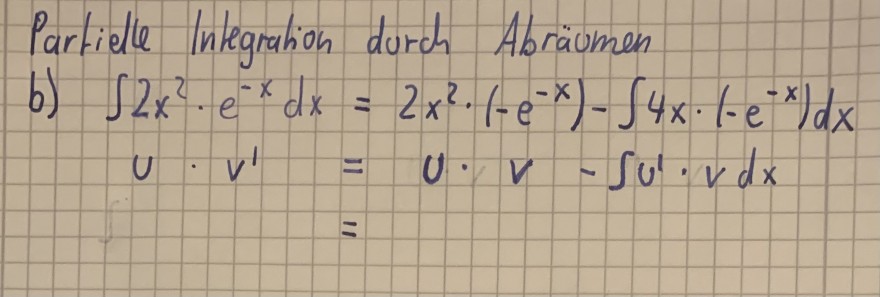 Partielle Integration durch Abräumen
b) ∫2x²·e⁻ˣ dx = 2x²·(-e⁻ˣ)-∫4x·(-e⁻ˣ)dx
u · v' = u · v -∫u'·v dx
=